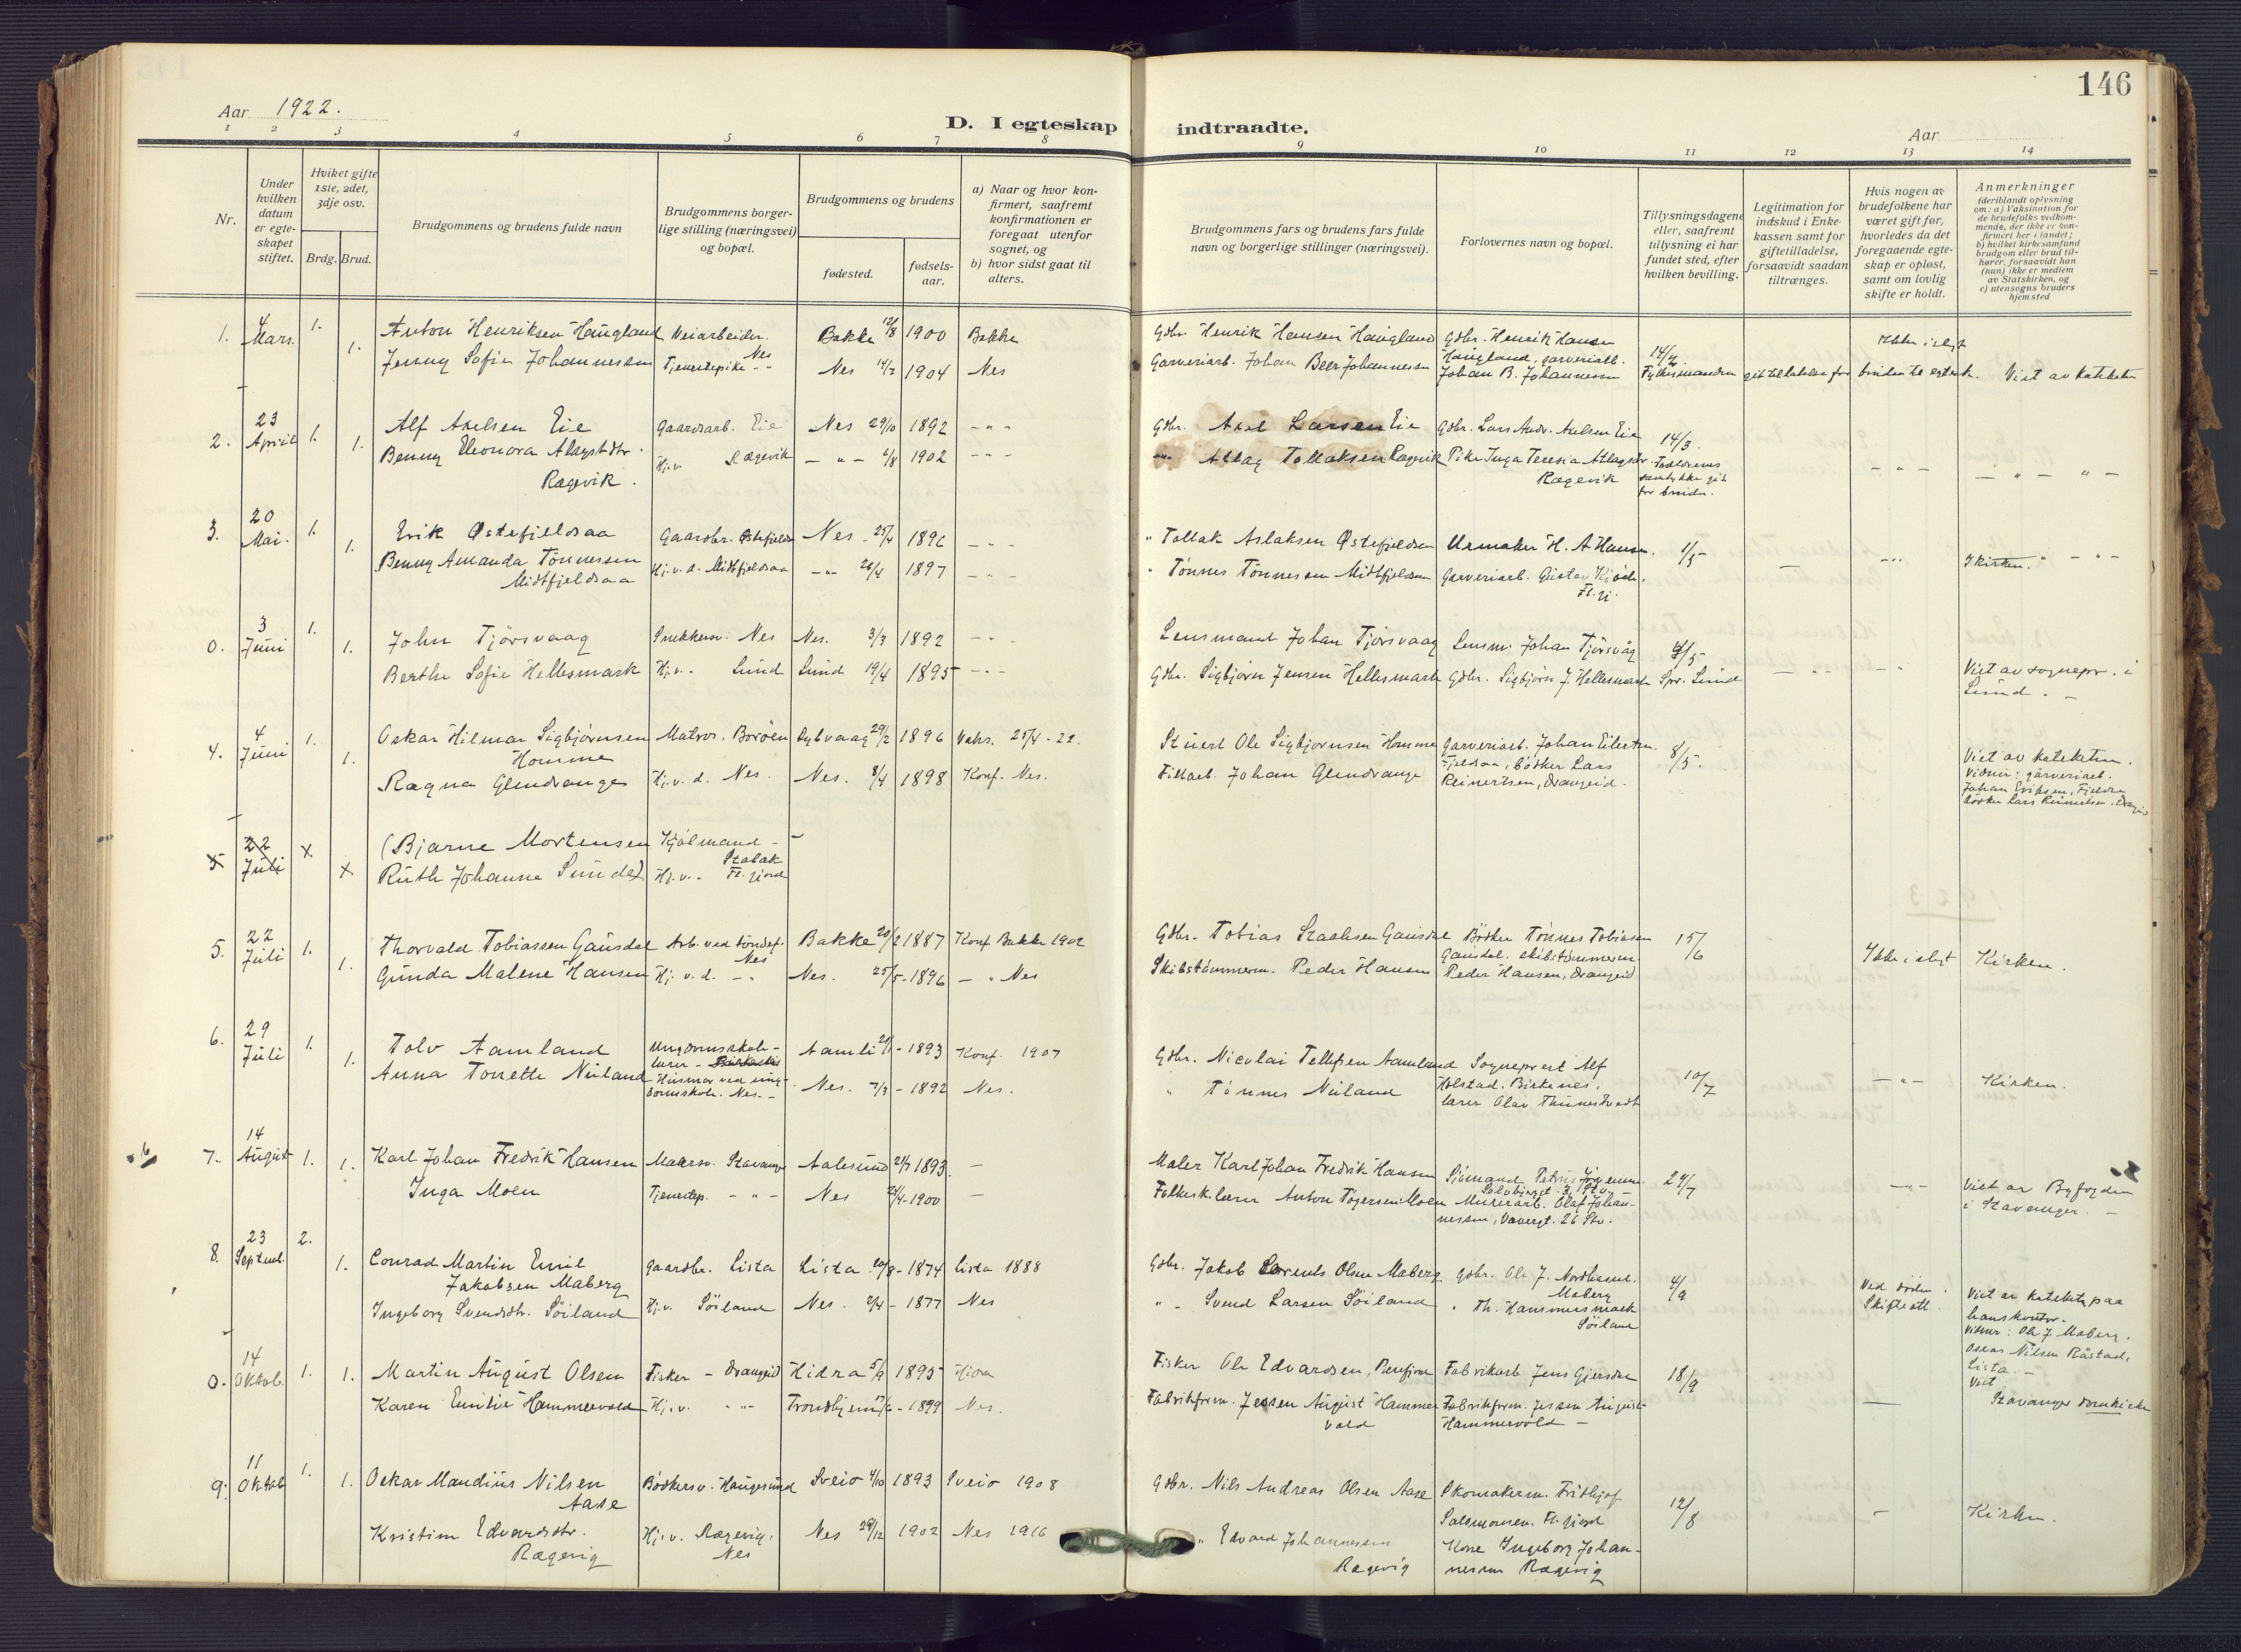 146
Aar 1922.
D. I egteskap indtraadte.
Aar
1 2 3 4 5 6 7 8 9 10 11 12 13 14
Nr.
Under hvilken datum er egteskapet stiftet.
Hviket gifte 1ste, 2det, 3dje osv.
Brdg. Brud.
Brudgommens og brudens fulde navn
Brudgommens borgerlige stilling (næringsvei) og bopæl.
Brudgommens og brudens
fødested.
fødselsaar.
a) Naar og hvor konfirmert, saafremt konfirmationen er foregaat utenfor sognet, og
b) hvor sidst gaat til alters.
Brudgommens fars og brudens fars fulde navn og borgerlige stillinger (næringsvei).
Forlovernes navn og bopæl.
Tillysningsdagene eller, saafremt tillysning ei har fundet sted, efter hvilken bevilling.
Legitimation for indskud i Enkekassen samt for giftetilladelse, forsaavidt saadan tiltrænges.
Hvis nogen av brudefolkene har været gift før, hvorledes da det foregaaende egteskap er opløst, samt om lovlig skifte er holdt.
Anmerkninger (deriblandt oplysning om: a) Vaksination for de brudefolks vedkommende, der ikke er konfirmert her i landet; b) hvilket kirkesamfund brudgom eller brud tilhører, forsaavidt han (hun) ikke er medlem av Statskirken, og c) utensogns bruders hjemsted
1. 4 Mars 1. Anton Henriksen Haugland Veiarbeider. Bakke 12/8 1900 Bakke Gdbr. Henrik Hansen Haugland Gdbr. Henrik Hansen Haugland, garveriarb.
1. Jenny Sofie Johannessen Tjenestepike Nes Nes 14/2 1904 Nes Garveriarb. Johan Beer Johannessen Johan B. Johannessen Fylkesmanden Viet av kateketen
2. 23 April 1. Alf Axelsen Eie Gaardsarb. Eie Nes 29/10 1892 - " - Gdbr. Axel Larsen Eie Gdbr. Lars Andr. Axelsen Eie 14/3.
1. Benny Eleonora Rægevik. Hj.v. Rægevik - " - 6/8 1902 - " - Tollaksen Rægevik Pike Inga Teresia Rægevik Forældrenes samtykke git for bruden. - " - - " -
3. 20 Mai. 1. Erik Østefjeldsaa Gaardbr. Nes 25/4 1896 - " - " Tollak Aslaksen Urmaker H. A Hansen. 1/5
1. Benny Amanda Tønnessen Midtfjeldsaa Hj.v.d. Midtfjeldsaa - " - 26/4 1897 - " - " Tønnes Tønnessen Garveriarb. Gustav I kirken.
0. 3 Juni 1. John Tjörsvaag Snekkersv. Nes Nes. 3/3 1892 - " - Lensmand Johan Tjörsvaag Lensm. Johan Tjörsvåg
1. Berthe Sofie Hellesmark Hj.v. Lund Lund 19/4 1895 - " - Gdbr. Sigbjörn Jensen Hellesmark Gdbr. Sigbjörn J. Hellesmark Spr. Lund Viet av sognepr. i Lund. -
4. 4 Juni 1. Oskar Hilmar Sigbjörnsen Homme Matros. Boröen Dybvaag 29/2 1896 Vaks. 25/4-22. Stuert Ole Sigbjornsen Homme Garveriarb. Johan 8/5. Viet av kateketen.
1. Ragna Glendrange Hj.v.d. Nes. Nes. 8/4 1898 Konf. Nes. Johan Glendrange bödker Lars Reinertsen, Drangeid. Vidner: garveriarb. Johan Eriksen, bödker Lars Reinertsen.
5 22 Juli x (Bjarne Mortensen
x Ruth Johanne Sunde) Hj.v. Fl. fjord
5. 22 Juli 1. Thorvald Tobiassen Gausdal Arb. ved Bakke 20/2 1887 Konf. Bakke 1902 Gdbr. Tobias Gausdal Bödker Tönnes Tobiassen Gausdal. skibstømmerm. 15/6 Ikke i slegt Kirken.
1. Gunda Malene Hansen Hj.v.d. Nes Nes. 25/5-1896 - " Nes Skibstømmerm. Peder Hansen Peder Hansen, Drangeid
6. 29 Juli 1. Tolv Aamland Ungdomsskole- lærer - Aamli 21/1-1893 Konf. 1907 Gdbr. Nicolai Tellefsen Aamland Sogneprest Alf Holstad. Birkenes,
1. Anna Torrette Nuland Husmor ved ungdomsskole. Nes. - Nes. 7/3-1892 Nes. " Tönnes Nuland lærer Olav 10/7 - " - Kirken.
7. 14 August 1. Karl Johan Fredrik Hansen Stavanger Aalesund 21/7 1893. - Maler Karl Johan Fredrik Hansen Sjömand Petrus 24/7 - " - Viet av Byfogden i Stavanger. -
1. Inga Moen Tjenestep. - " - Nes 24/4-1900 - Folkesk.lærer Anton Tögersen Moen Murerarb. Olaf Johannessen, 26 Stv.
8. 23 Septemb. 2. Conrad Martin Emil Jakobsen Maberg Gaardbr. Lista Lista 20/8-1874 Lista 1888 Gdbr. Jakob Olsen Maberg Gdbr. Ole J. Maberg 4/9 Ved döden. Skifteatt. Viet av kateketen paa hans kontor.
1. Ingeborg Svendsdtr. Söiland Hj.v. Söiland Nes. 2/4-1877 Nes " - Svend Larsen Söiland " Th. Hammersmark Söiland Vidner: Ole J. Maberg. Oskar Nilsen Råstad, Lista. -
0. 14 Oktob. 1. Martin August Olsen Fisker - Drangeid Hidra 5/9 1895 Hidra Fisker Ole Edvardsen, Fabrikarb Jens Gjersdal 18/9 Viet
1. Karen Emilie Hammervold Hj.v. - " - Trondhjem -1899 Nes. Fabrikform. Jessen August Hammervold Fabrikform. Jessen August Hammervold - Stavanger domkirke
9. 11 Oktob 1. Oskar Maudius Nilsen Aase Bödkersv. Haugesund Sveio 4/10 1893 Sveio 1908 Gdbr. Nils Andreas Olsen Aase Skomakerm. Frithjof Salomonsen. Fl. fjord 12/8 - Kirken.
1. Kristine Edvardsdtr. Rægevig Hj.v. Rægevig, Nes Nes 29/12 1902 Nes 1916 " Edvard Johannessen Rægevig Kone Ingeborg Johannessen Rægevig